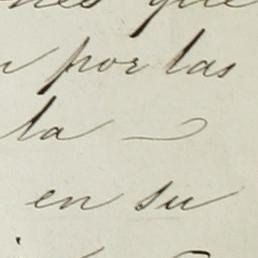 que
por las
la
en su